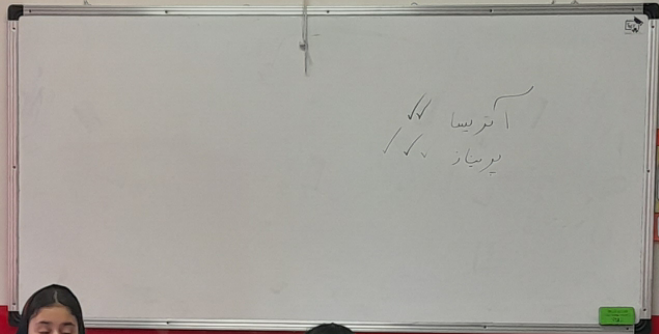 آتریسا ✓✓
پریناز ✓✓✓